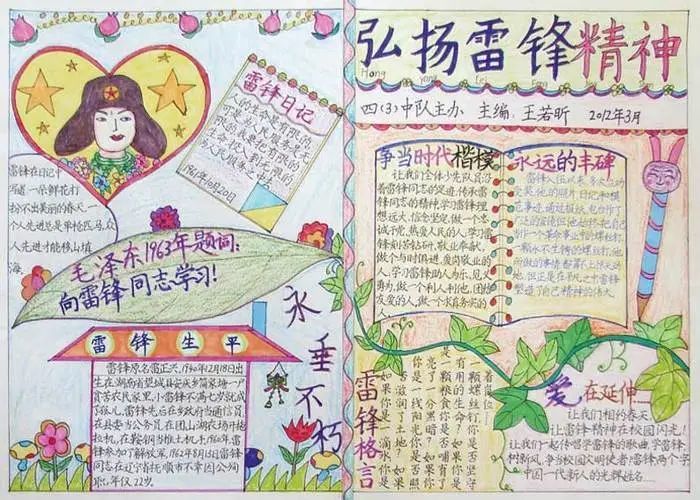 雷锋日记
人的生命是有限的
可是为人民服务是无
限的我要把有限的
生命投入到无限的
为人民服务之中去
1961年10月20日
雷锋在日记中
写道一朵鲜花打
扮不出美丽的春天一
个人先进总是单枪匹马,众
人先进才能移山填
海
毛泽东1963年题词:
向雷锋同志学习!
永垂不朽
雷锋生平
雷锋原名雷正兴,1940年12月18日出
生在湖南省望城县安庆乡简家场一户
贫苦农民家里,小雷锋不满七岁就成
了孤儿。雷锋先后在乡政府当通信员
在县委当公务员,在团山湖农场开拖
拉机,在鞍钢当推土机手,1960年,雷
锋参加了解放军,1962年8月15日雷锋
同志在辽宁省抚顺市不幸因公殉
职,年仅22岁。
弘扬雷锋精神
Hong yang Lei Feng
四(3)中队主办 主编:王若昕 2012年3月
争当时代楷模
让我们全体少先队员沿
着雷锋同志的足迹,传承雷
锋同志的精神,学习雷锋理
想远大,信念坚定,做一个忠
诚于党,热爱人民的人;学习雷
锋刻苦钻研,敬业奉献,
做个与时俱进,爱岗敬业的
人;学习雷锋助人为乐,见义
勇为,做个利人利他,团结
友爱的人,做一个求真务实的
人。
永远的丰碑
一颗永不生锈的螺丝钉,他
所做的事情都算不上伟大的
但正是在平凡之中
塑造了自己精神的伟大。
雷锋格言
如果你是一滴水,你是否
滋润了一寸土地?如果
你是一线阳光,你是否照
亮了一分黑暗?如果你是
一颗粮食,你是否哺育了
有用的生命?如果你是
一颗螺丝钉,你是否坚守
着岗位
爱在延伸……
让我们相约春天
让雷锋精神在校园闪光!
让我们一起传唱学雷锋的歌曲,学雷锋,
树新风,争当校园文明使者!雷锋,两个字
中国一代新人的光辉姓名……